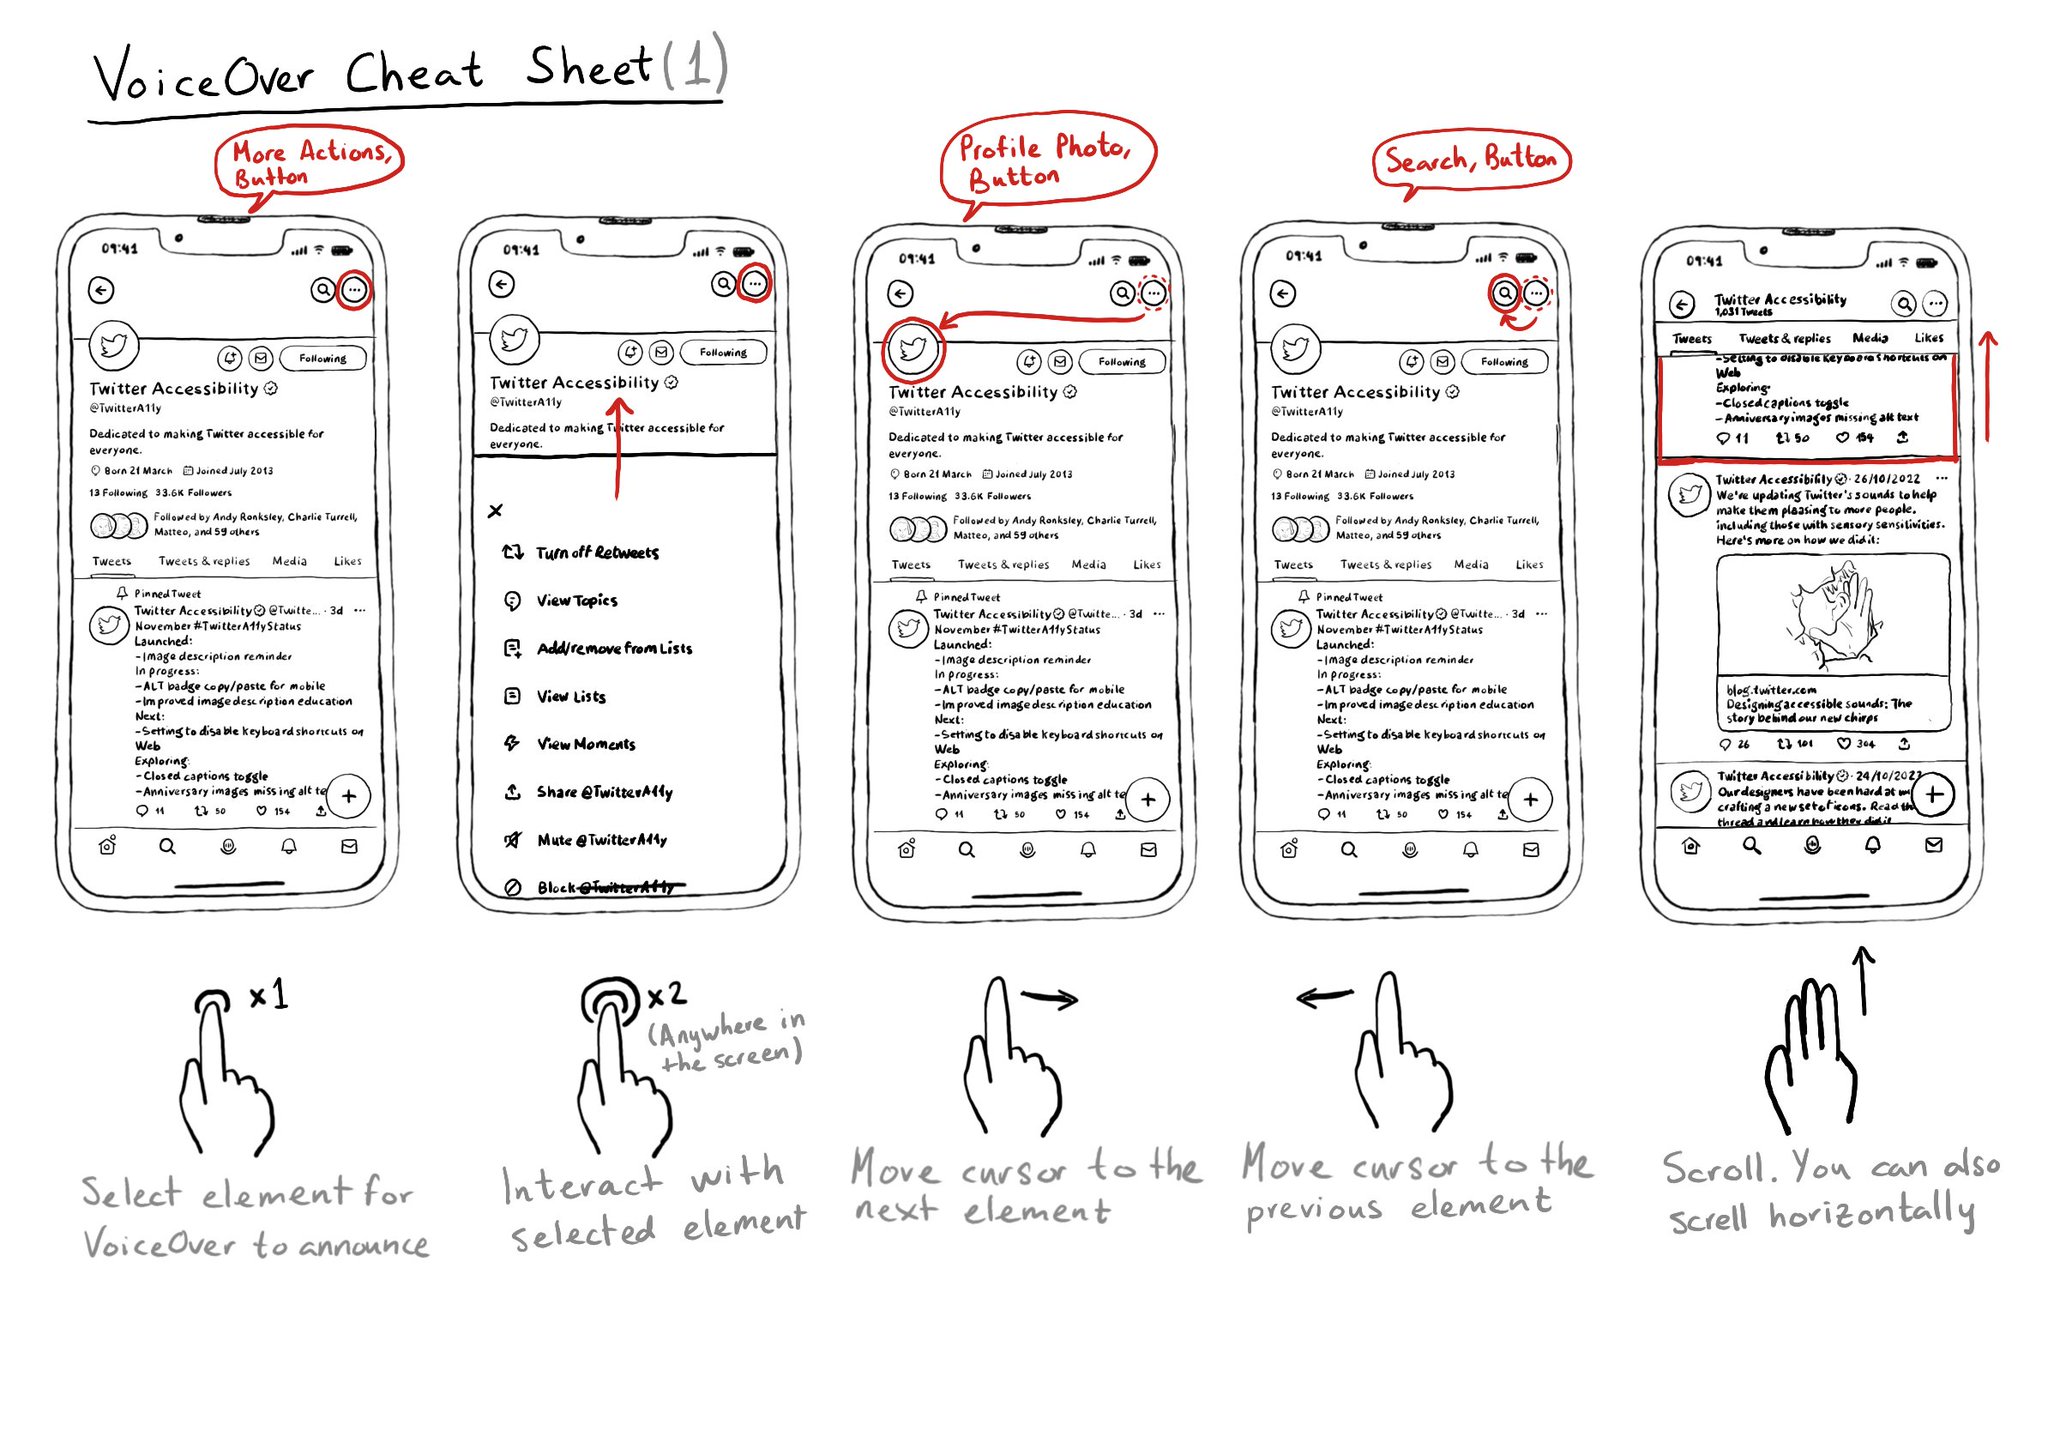 VoiceOver Cheat Sheet (1)
More Actions,
Button
09:41
Following
Twitter Accessibility
@TwitterA11y
Dedicated to making Twitter accessible for
everyone.
Born 21 March Joined July 2013
13 Following 33.6K Followers
Followed by Andy Ronksley, Charlie Turrell,
Matteo, and 59 others
Tweets Tweets & replies Media Likes
Pinned Tweet
Twitter Accessibility @Twitte... · 3d ...
November #TwitterA11yStatus
Launched:
-Image description reminder
In progress:
-ALT badge copy/paste for mobile
-Improved image description education
Next:
-Setting to disable keyboard shortcuts on
Web
Exploring:
-Closed captions toggle
-Anniversary images missing alt te
11 50 154
x1
Select element for
VoiceOver to announce
09:41
Following
Twitter Accessibility
@TwitterA11y
Dedicated to making Twitter accessible for
everyone.
Turn off Retweets
View Topics
Add/remove from Lists
View Lists
View Moments
Share @TwitterA11y
Mute @TwitterA11y
Block @TwitterA11y
x2
(Anywhere in
the screen)
Interact with
selected element
Profile Photo,
Button
09:41
Following
Twitter Accessibility
@TwitterA11y
Dedicated to making Twitter accessible for
everyone.
Born 21 March Joined July 2013
13 Following 33.6K Followers
Followed by Andy Ronksley, Charlie Turrell,
Matteo, and 59 others
Tweets Tweets & replies Media Likes
Pinned Tweet
Twitter Accessibility @Twitte... · 3d ...
November #TwitterA11yStatus
Launched:
-Image description reminder
In progress:
-ALT badge copy/paste for mobile
-Improved image description education
Next:
-Setting to disable keyboard shortcuts on
Web
Exploring:
-Closed captions toggle
-Anniversary images missing alt te
11 50 154
Move cursor to the
next element
Search, Button
09:41
Following
Twitter Accessibility
@TwitterA11y
Dedicated to making Twitter accessible for
everyone.
Born 21 March Joined July 2013
13 Following 33.6K Followers
Followed by Andy Ronksley, Charlie Turrell,
Matteo, and 59 others
Tweets Tweets & replies Media Likes
Pinned Tweet
Twitter Accessibility @Twitte... · 3d ...
November #TwitterA11yStatus
Launched:
-Image description reminder
In progress:
-ALT badge copy/paste for mobile
-Improved image description education
Next:
-Setting to disable keyboard shortcuts on
Web
Exploring:
-Closed captions toggle
-Anniversary images missing alt te
11 50 154
Move cursor to the
previous element
09:41
Twitter Accessibility
1,031 Tweets
Tweets Tweets & replies Media Likes
-Setting to disable keyboard shortcuts on
Web
Exploring:
-Closed captions toggle
-Anniversary images missing alt text
11 50 154
Twitter Accessibility · 26/10/2022 ...
We're updating Twitter's sounds to help
make them pleasing to more people,
including those with sensory sensitivities.
Here's more on how we did it:
blog.twitter.com
Designing accessible sounds: The
story behind our new chirps
26 101 304
Twitter Accessibility · 24/10/2022
Our designers have been hard at w
crafting a new set of icons. Read th
thread and learn how they did it
Scroll. You can also
scroll horizontally